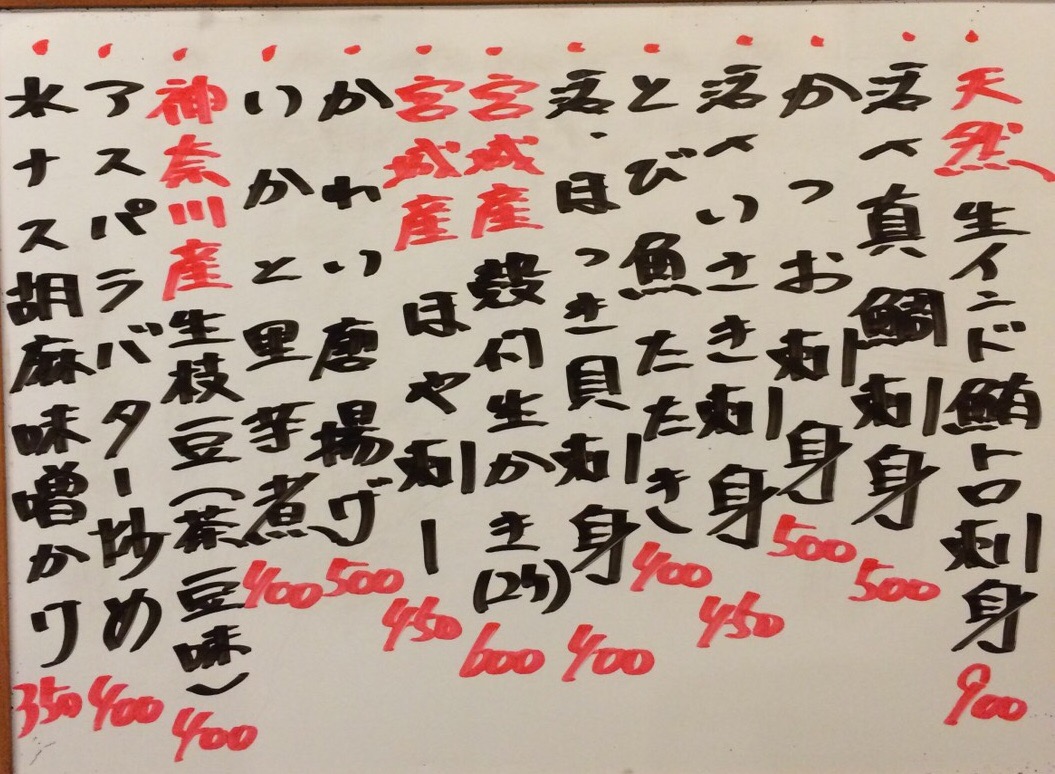 天然生インド鮪トロ刺身 900
活〆真鯛刺身 500
かつお刺身 500
活〆いさき刺身 450
とび魚たたき 400
活・ほっき貝刺身 400
宮城産殻付生かき(2ケ) 600
宮城産ほや刺し 450
かれい唐揚げ 500
いかと里芋煮 400
神奈川産生枝豆(茶豆味) 400
アスパラバター炒め 400
水ナス胡麻味噌かけ 350